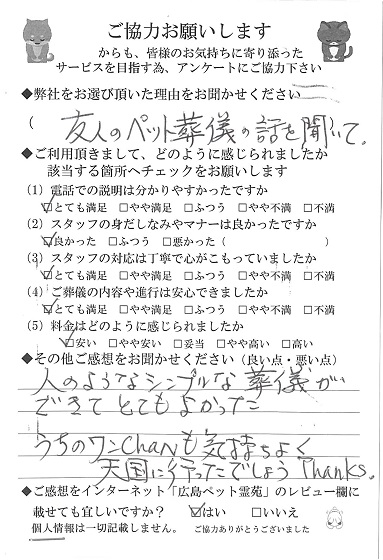 ご協力お願いします
からも、皆様のお気持ちに寄り添った
サービスを目指す為、アンケートにご協力下さい
◆弊社をお選び頂いた理由をお聞かせください
( 友人のペット葬儀の話を聞いて。
◆ご利用頂きまして、どのように感じられましたか
該当する箇所へチェックをお願いします
(1) 電話での説明は分かりやすかったですか
☑とても満足 □やや満足 □ふつう □やや不満 □不満
(2) スタッフの身だしなみやマナーは良かったですか
☑良かった □ふつう □悪かった ( )
(3) スタッフの対応は丁寧で心がこもっていましたか
☑とても満足 □やや満足 □ふつう □やや不満 □不満
(4) ご葬儀の内容や進行は安心できましたか
☑とても満足 □やや満足 □ふつう □やや不満 □不満
(5) 料金はどのように感じられましたか
☑安い □やや安い □妥当 □やや高い □高い
◆その他ご感想をお聞かせください (良い点・悪い点)
人のようなシンプルな葬儀が
できてとてもよかった
うちのワンchanも気持ちよく
天国に行ったでしょう Thanks.
◆ご感想をインターネット「広島ペット霊苑」のレビュー欄に
載せても宜しいですか? ☑はい □いいえ
個人情報は一切記載しません。 ご協力ありがとうございました